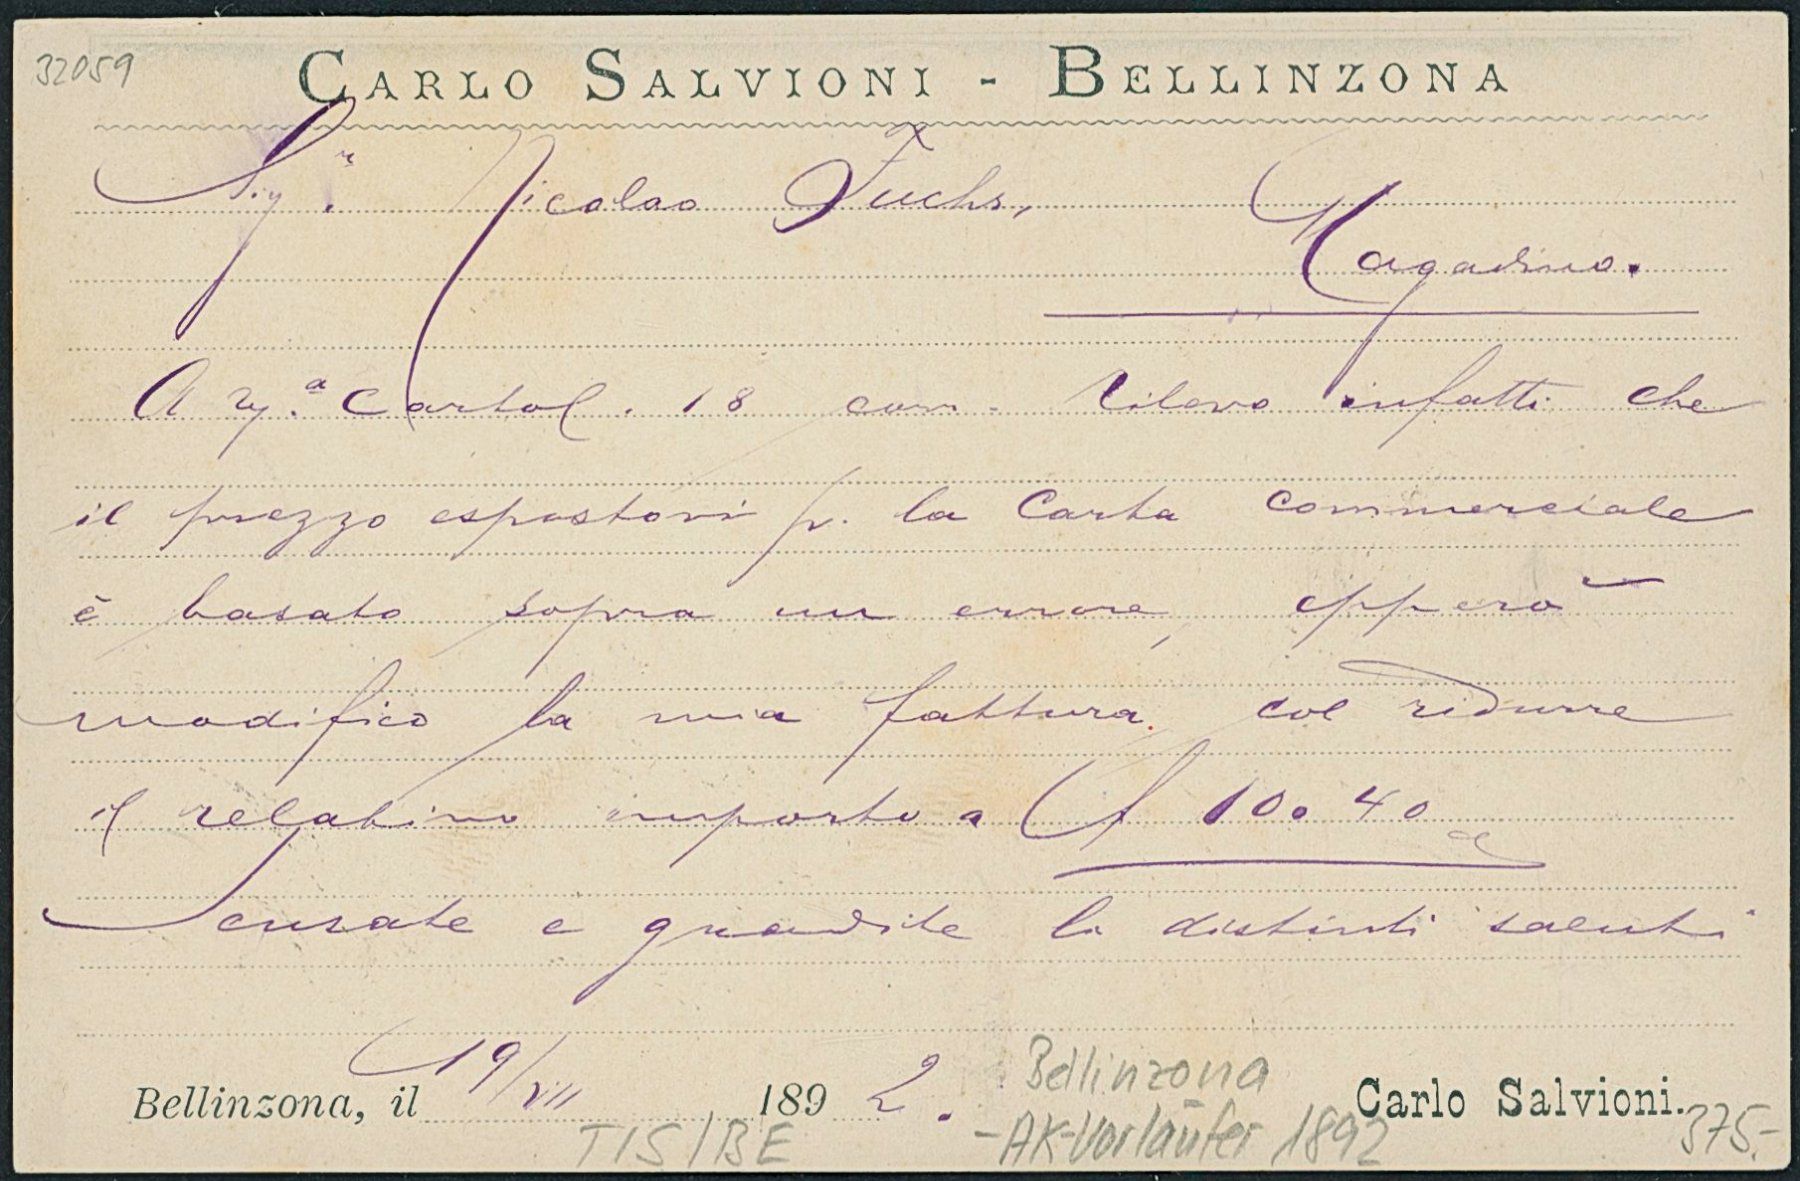 32059
CARLO SALVIONI - BELLINZONA
Sig.r Nicolao Fuchs,
Magadino.
A Vs.a Cartol. 18 corr. rilevo infatti che
il prezzo espostovi p. la Carta commerciale
è basato sopra un errore, epperò
modifico la mia fattura col ridurre
il relativo importo a f 10.40
Scusate e gradite li distinti saluti
Bellinzona, il 19/VII 1892.
Carlo Salvioni.
Bellinzona
TIS/BE
-AK-Vorläufer 1892
375.-